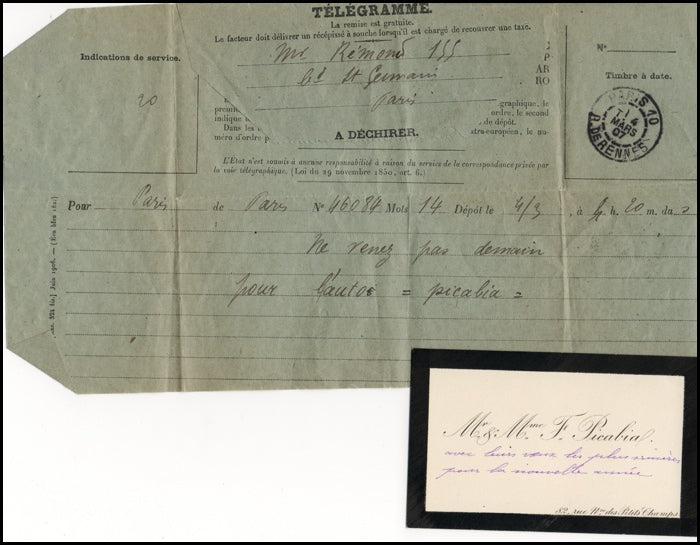 TÉLÉGRAMME.
La remise est gratuite.
Le facteur doit délivrer un récépissé à souche lorsqu'il est chargé de recouvrer une taxe.
Indications de service.
20
Mr Rémond 155
Bd St Germain
Paris
AR
RO
N°
Timbre à date.
PARIS 10
4
MARS
07
R. DE RENNES
graphique, le
ordre, le second
indique
de dépôt.
Dans les
extra-européen, le nu-
méro d'ordre
A DÉCHIRER.
L'État n'est soumis à aucune responsabilité à raison du service de la correspondance privée par
la voie télégraphique. (Loi du 29 novembre 1850, art. 6.)
Pour Paris de Paris N° 46084 Mots 14 Dépôt le 4/3 à 4 h. 20 m. du s
Ne venez pas demain
pour l'auto = picabia =
Juin 1906.
Mr & Mme F. Picabia.
avec leurs vœux les plus sincères
pour la nouvelle année
82, rue Nve des Petits Champs